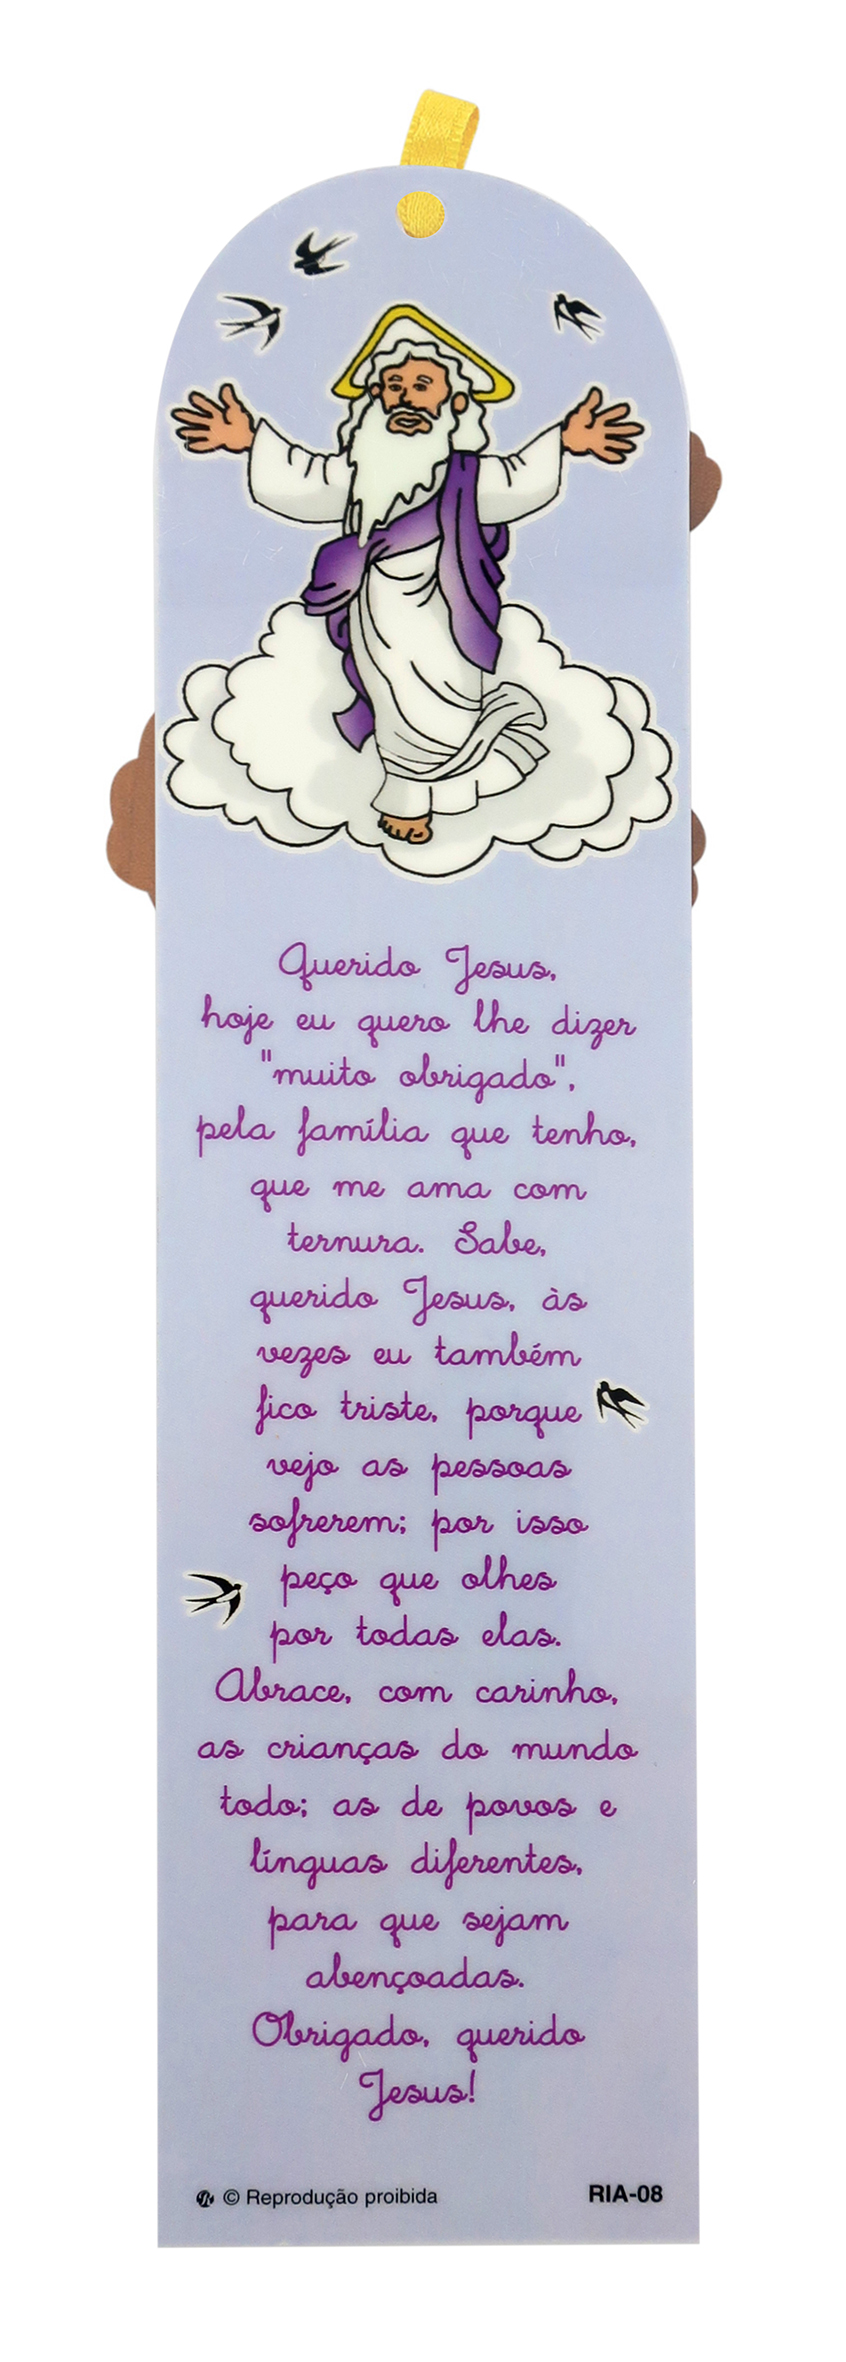 Querido Jesus,
hoje eu quero lhe dizer
"muito obrigado",
pela família que tenho,
que me ama com
ternura. Sabe,
querido Jesus, às
vezes eu também
fico triste, porque
vejo as pessoas
sofrerem; por isso
peço que olhes
por todas elas.
Abrace, com carinho,
as crianças do mundo
todo; as de povos e
línguas diferentes,
para que sejam
abençoadas.
Obrigado, querido
Jesus!
© Reprodução proibida RIA-08